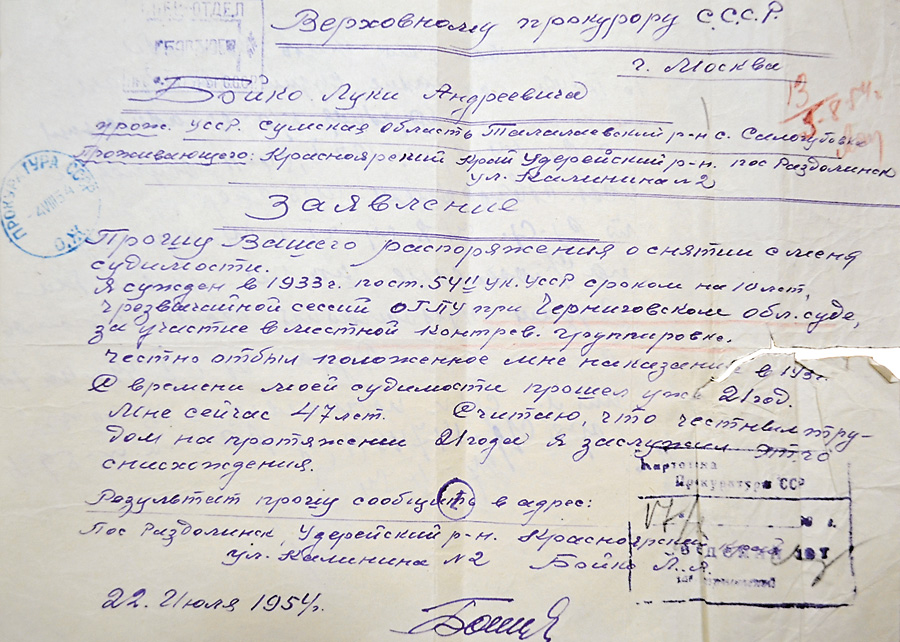 ОТДЕЛ
Верховному прокурору С.С.С.Р.
г. Москва
Бойко Луки Андреевича
13
5.8.54г.
урож. УССР. Сумская область Талалаевский р-н с.
Проживающего: Красноярский край Удерейский р-н. пос Раздолинск
ул. Калинина №2
ПРОКУРАТУРА СССР
Заявление
Прошу Вашего распоряжения о снятии с меня
судимости.
Я сужден в 1933г. по ст. 54 II УК. УССР сроком на 10 лет,
чрезвычайной сессий ОГПУ при Черниговском обл. суде,
за участие в местной контрев. группировке.
Честно отбыл положенное мне наказание в 193
С времени моей судимости прошел уже 21 год.
Мне сейчас 47 лет. Считаю, что честным тру-
дом на протяжении 21 года я заслужил этого
снисхождения.
Результат прошу сообщить в адрес:
Пос Раздолинск, Удерейский р-н. Красноярский
ул. Калинина №2 Бойко Л.А.
Картотека
Прокуратуры СССР
22. Июля 1954г.